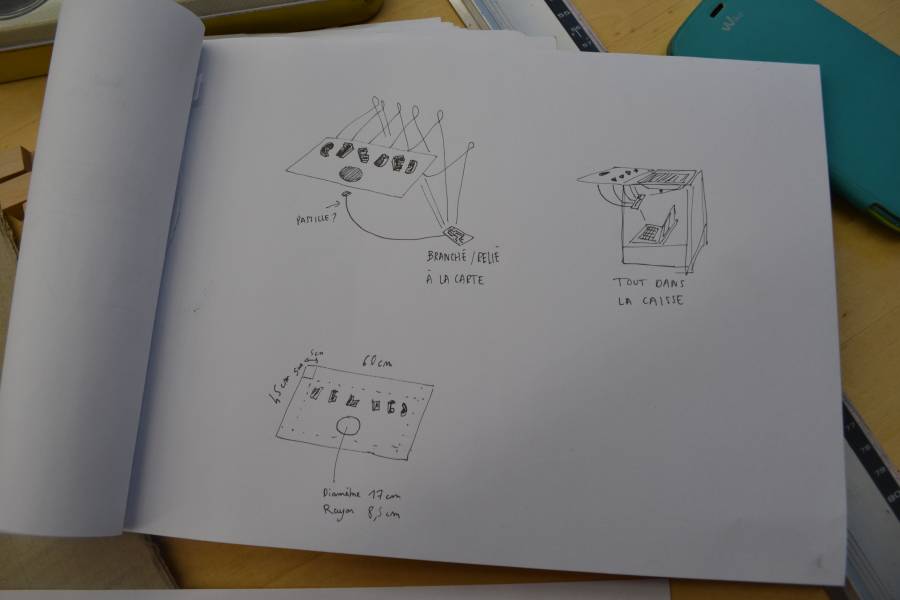 PASTILLE?
BRANCHÉ/RELIÉ
À LA CARTE
TOUT DANS
LA CAISSE
5cm
60cm
5cm
45cm
Diamètre 17cm
Rayon 8,5cm
Wiko
77
78
79
80